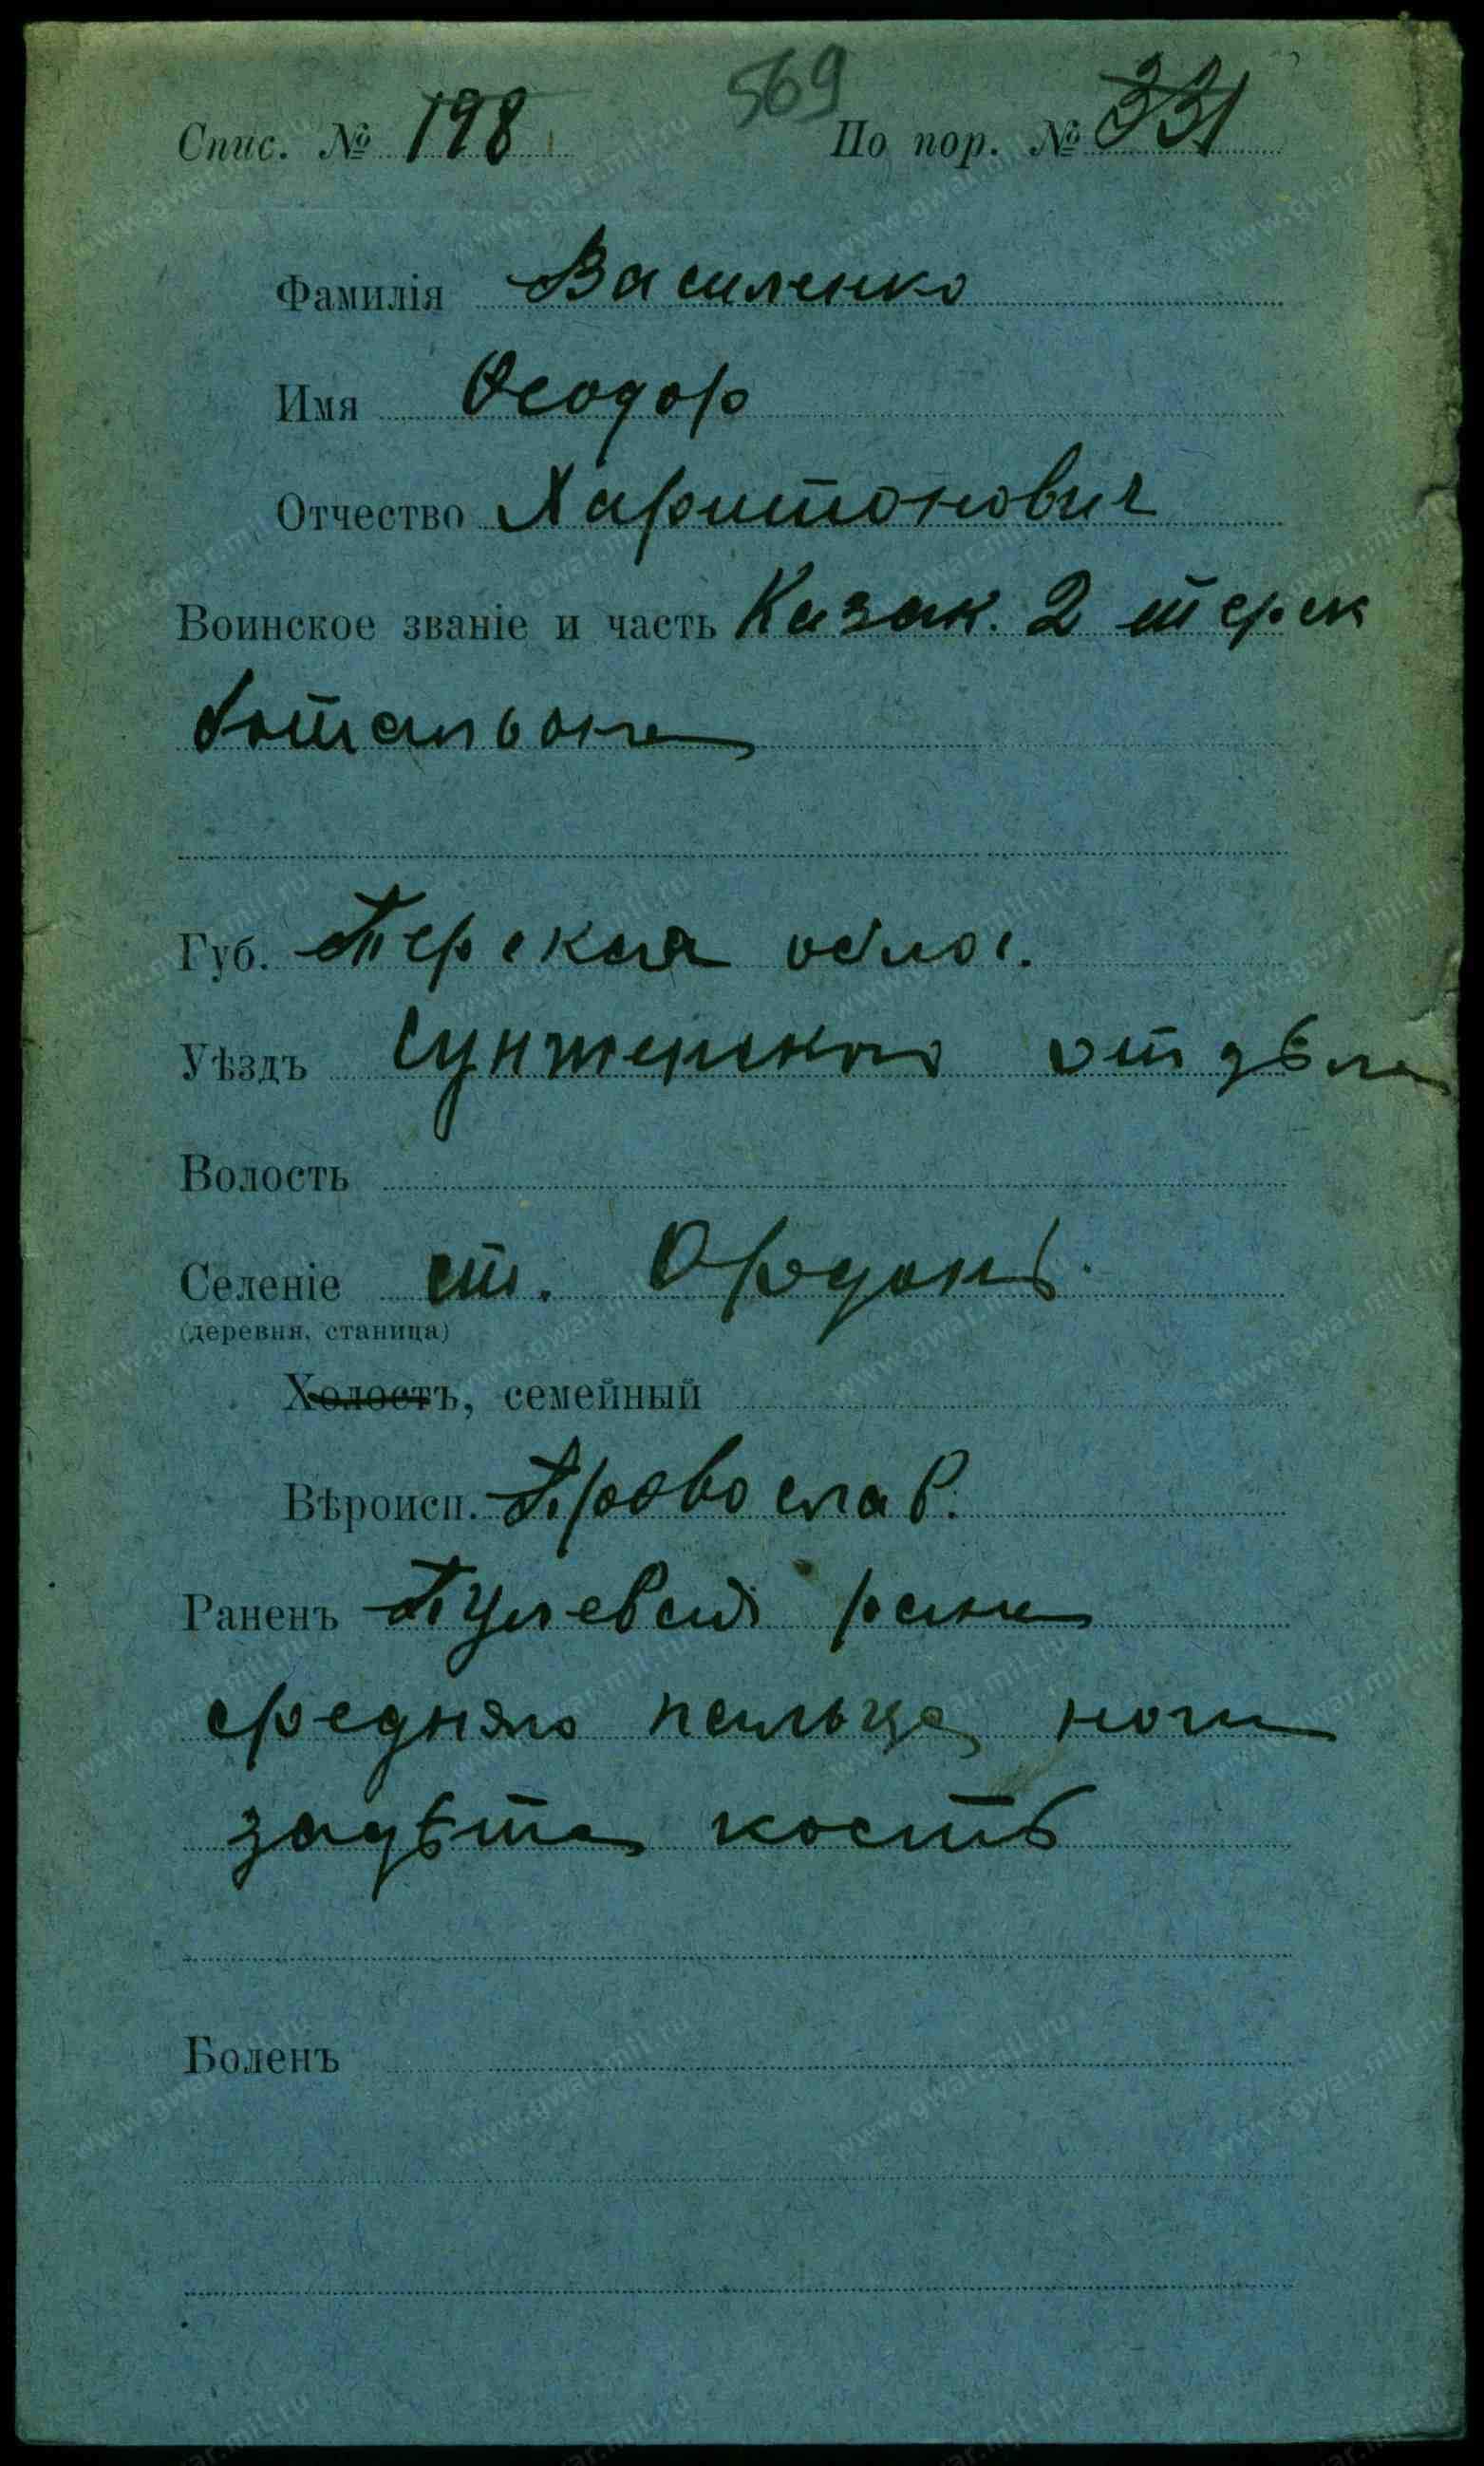 569
Спис. № 198 По пор. № 331
Фамилія Василенко
Имя Ѳеодор
Отчество Харитонович
Воинское званіе и часть Казак. 2 терск
ботальона
Губ. Терская облос.
Уѣздъ Сунженского отдѣла
Волость
Селеніе ст. Ордонъ.
(деревня, станица)
Холостъ, семейный
Вѣроисп. Провослав.
Раненъ Пулевая рана
средняго пальца ноги
задѣта кость
Боленъ
www.gwar.mil.ru